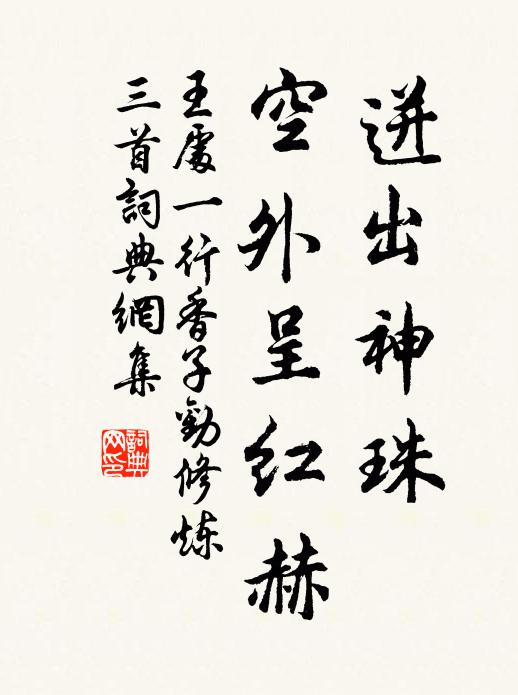 迸出神珠
空外呈紅赫
王處一行香子勸修煉
三首詞典網集
詞典网印